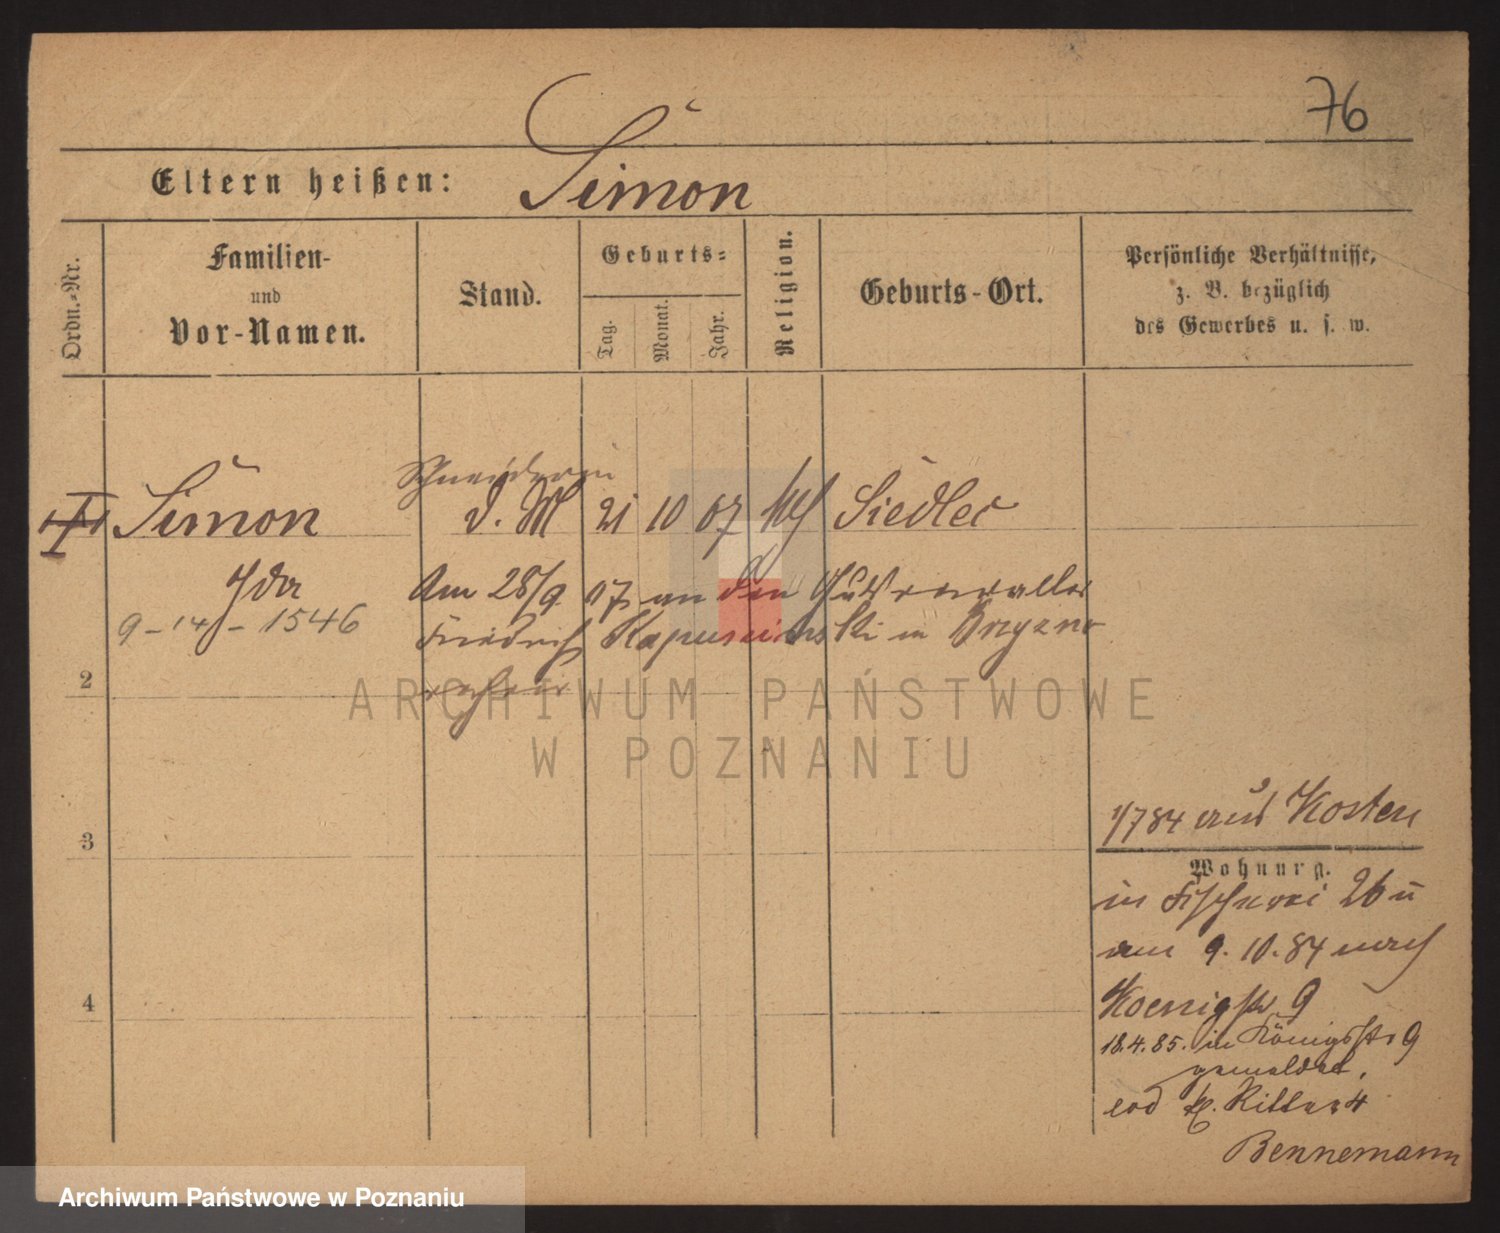 76
Eltern heißen: Simon
Ordn.-Nr.
Familien-
und
Vor-Namen.
Stand.
Geburts-
Tag.
Monat.
Jahr.
Religion.
Geburts-Ort.
Persönliche Verhältnisse,
z. B. bezüglich
des Gewerbes u. s. w.
Schneiderin
Simon d. M 21 10 67 Siedlec
Ida Am 28/9 07 an den
9-14-1546 Friedrich in
2
3
4
1/784 aus Kosten
Wohnung.
in Fischerei 26
am 9.10.84 nach
Koenigstr 9
18.4.85. in Königsstr 9
gemeldet,
Ritter 4
Bennemann
ARCHIWUM PAŃSTWOWE
W POZNANIU
Archiwum Państwowe w Poznaniu